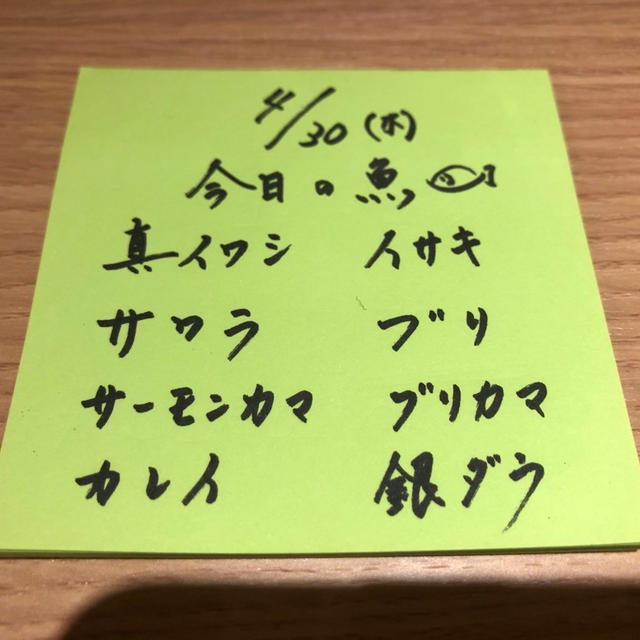 4/30(木)
今日の魚
真イワシ イサキ
サワラ ブリ
サーモンカマ ブリカマ
カレイ 銀ダラ